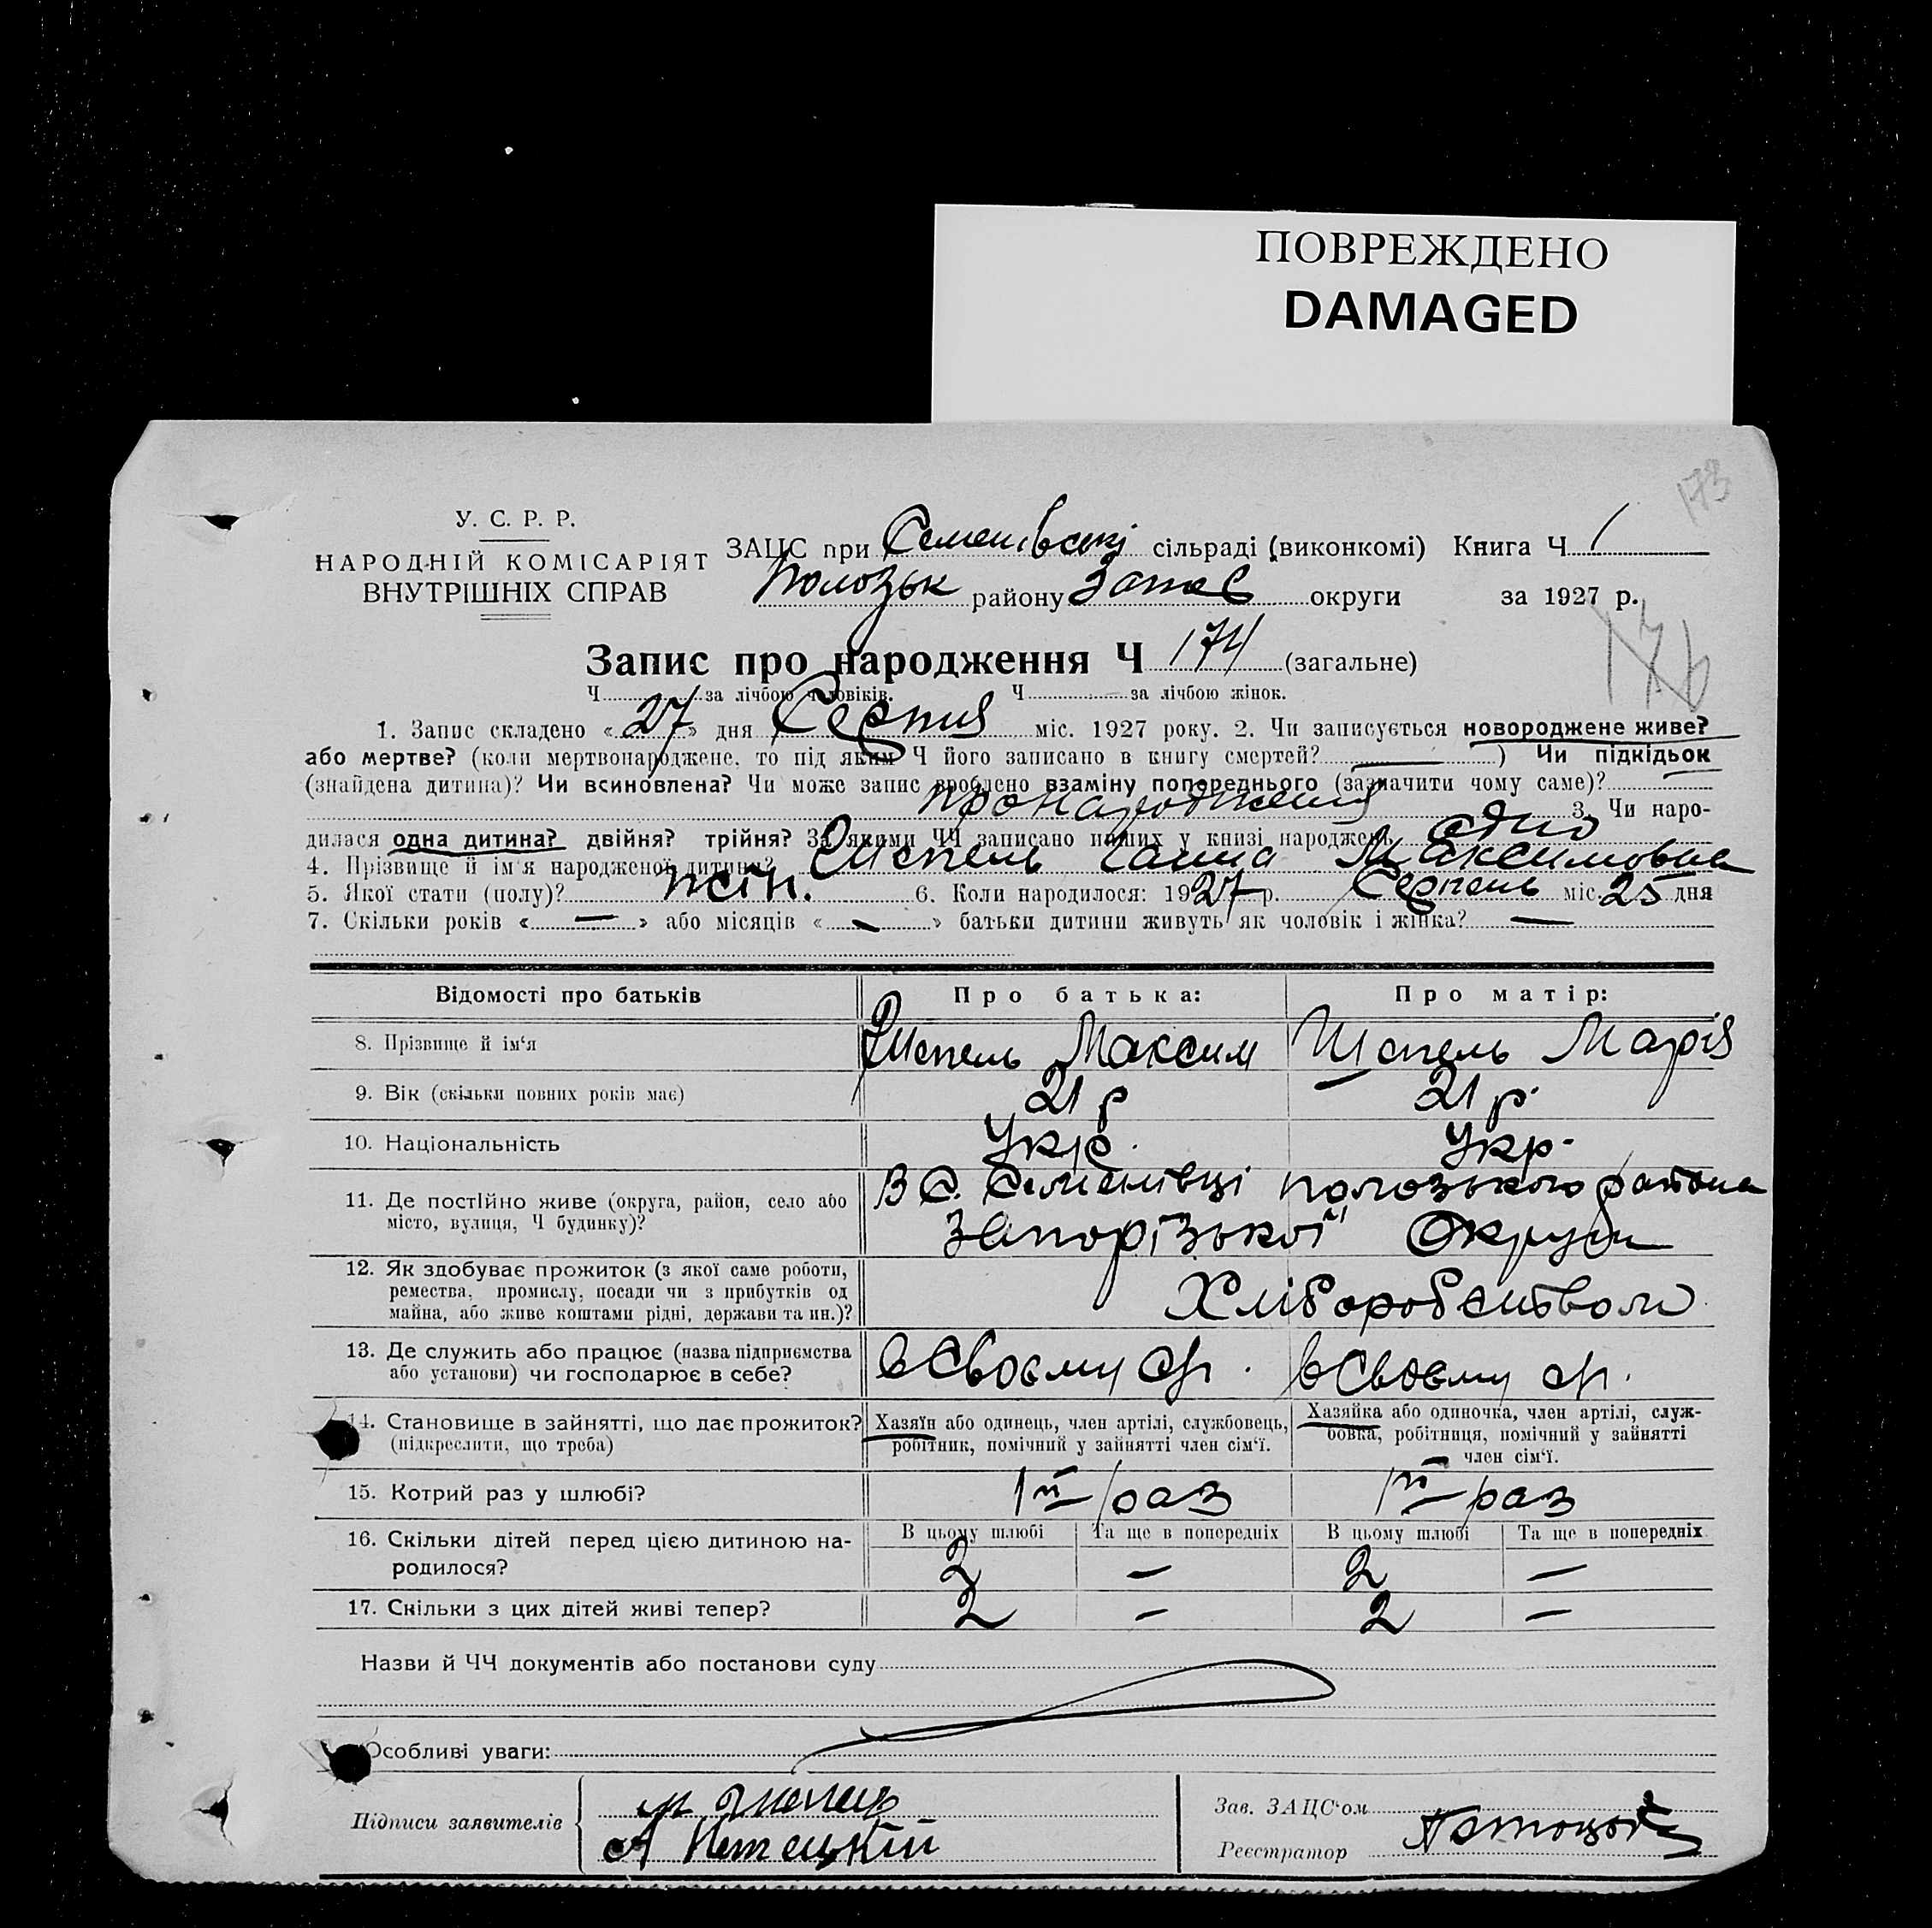 ПОВРЕЖДЕНО
DAMAGED
173
У. С. Р. Р.
НАРОДНІЙ КОМІСАРІЯТ
ВНУТРІШНІХ СПРАВ
ЗАЦС при Семенівські сільраді (виконкомі) Книга Ч 1
Полозьк району Запоє округи за 1927 р.
176
Запис про народження Ч 174 (загальне)
Ч за лічбою чоловіків. Ч за лічбою жінок.
1. Запис складено « 27 » дня Серпня міс. 1927 року. 2. Чи записується новороджене живе?
або мертве? (коли мертвонароджене, то під яким Ч його записано в книгу смертей? — ) Чи підкідьок
(знайдена дитина)? Чи всиновлена? Чи може запис зроблено взаміну попереднього (зазначити чому саме)? —
про народження 3. Чи наро-
дилася одна дитина? двійня? трійня? За якими ЧЧ записано инших у книзі народжень одно
4. Прізвище й ім'я народженої дитини? Шепель Ганна Максимовна
5. Якої стати (полу)? жін. 6. Коли народилося: 1927 р. Серпень міс. 25 дня
7. Скільки років « — » або місяців « — » батьки дитини живуть як чоловік і жінка? —
Відомості про батьків Про батька: Про матір:
8. Прізвище й ім'я Шепель Максим Шепель Марія
9. Вік (скільки повних років має) 21 р 21 р.
10. Національність Укр. Укр.
11. Де постійно живе (округа, район, село або В с. Семенівці полозького района
місто, вулиця, Ч будинку)? Запорізької Округи
12. Як здобуває прожиток (з якої саме роботи,
ремества, промислу, посади чи з прибутків од
майна, або живе коштами рідні, держави та ин.)? Хліборобством
13. Де служить або працює (назва підприємства
або установи) чи господарює в себе? в своєму гр. в своєму гр.
14. Становище в зайнятті, що дає прожиток? Хазяїн або одинець, член артілі, службовець, Хазяйка або одиночка, член артілі, служ-
(підкреслити, що треба) робітник, помічний у зайнятті член сім'ї. бовка, робітниця, помічний у зайнятті
член сім'ї.
15. Котрий раз у шлюбі? 1й раз 1й раз
В цьому шлюбі Та ще в попередніх В цьому шлюбі Та ще в попередніх
16. Скільки дітей перед цією дитиною на-
родилося? 2 — 2 —
17. Скільки з цих дітей живі тепер? 2 — 2 —
Назви й ЧЧ документів або постанови суду
Особливі уваги:
Підписи заявителів
Зав. ЗАЦС'ом
Реєстратор